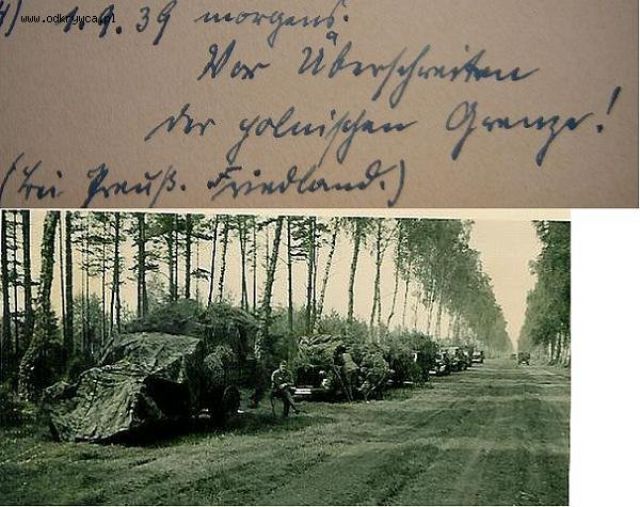 www.odkrywca.pl
4) 1.9.39 morgens.
Vor Überschreiten
der polnischen Grenze!
(bei Preuß. Friedland.)